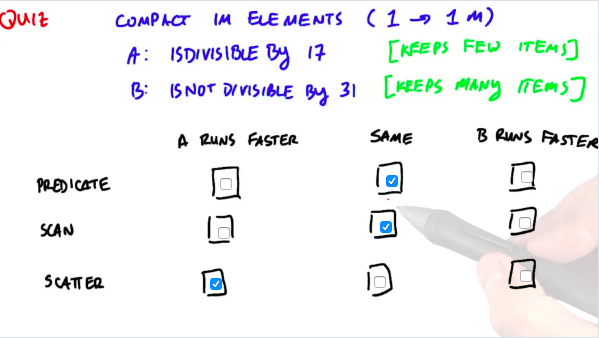 QUIZ COMPACT 1M ELEMENTS (1 → 1M)
A: ISDIVISIBLE BY 17 [KEEPS FEW ITEMS]
B: ISNOT DIVISIBLE BY 31 [KEEPS MANY ITEMS]
A RUNS FASTER SAME B RUNS FASTER
PREDICATE
SCAN
SCATTER